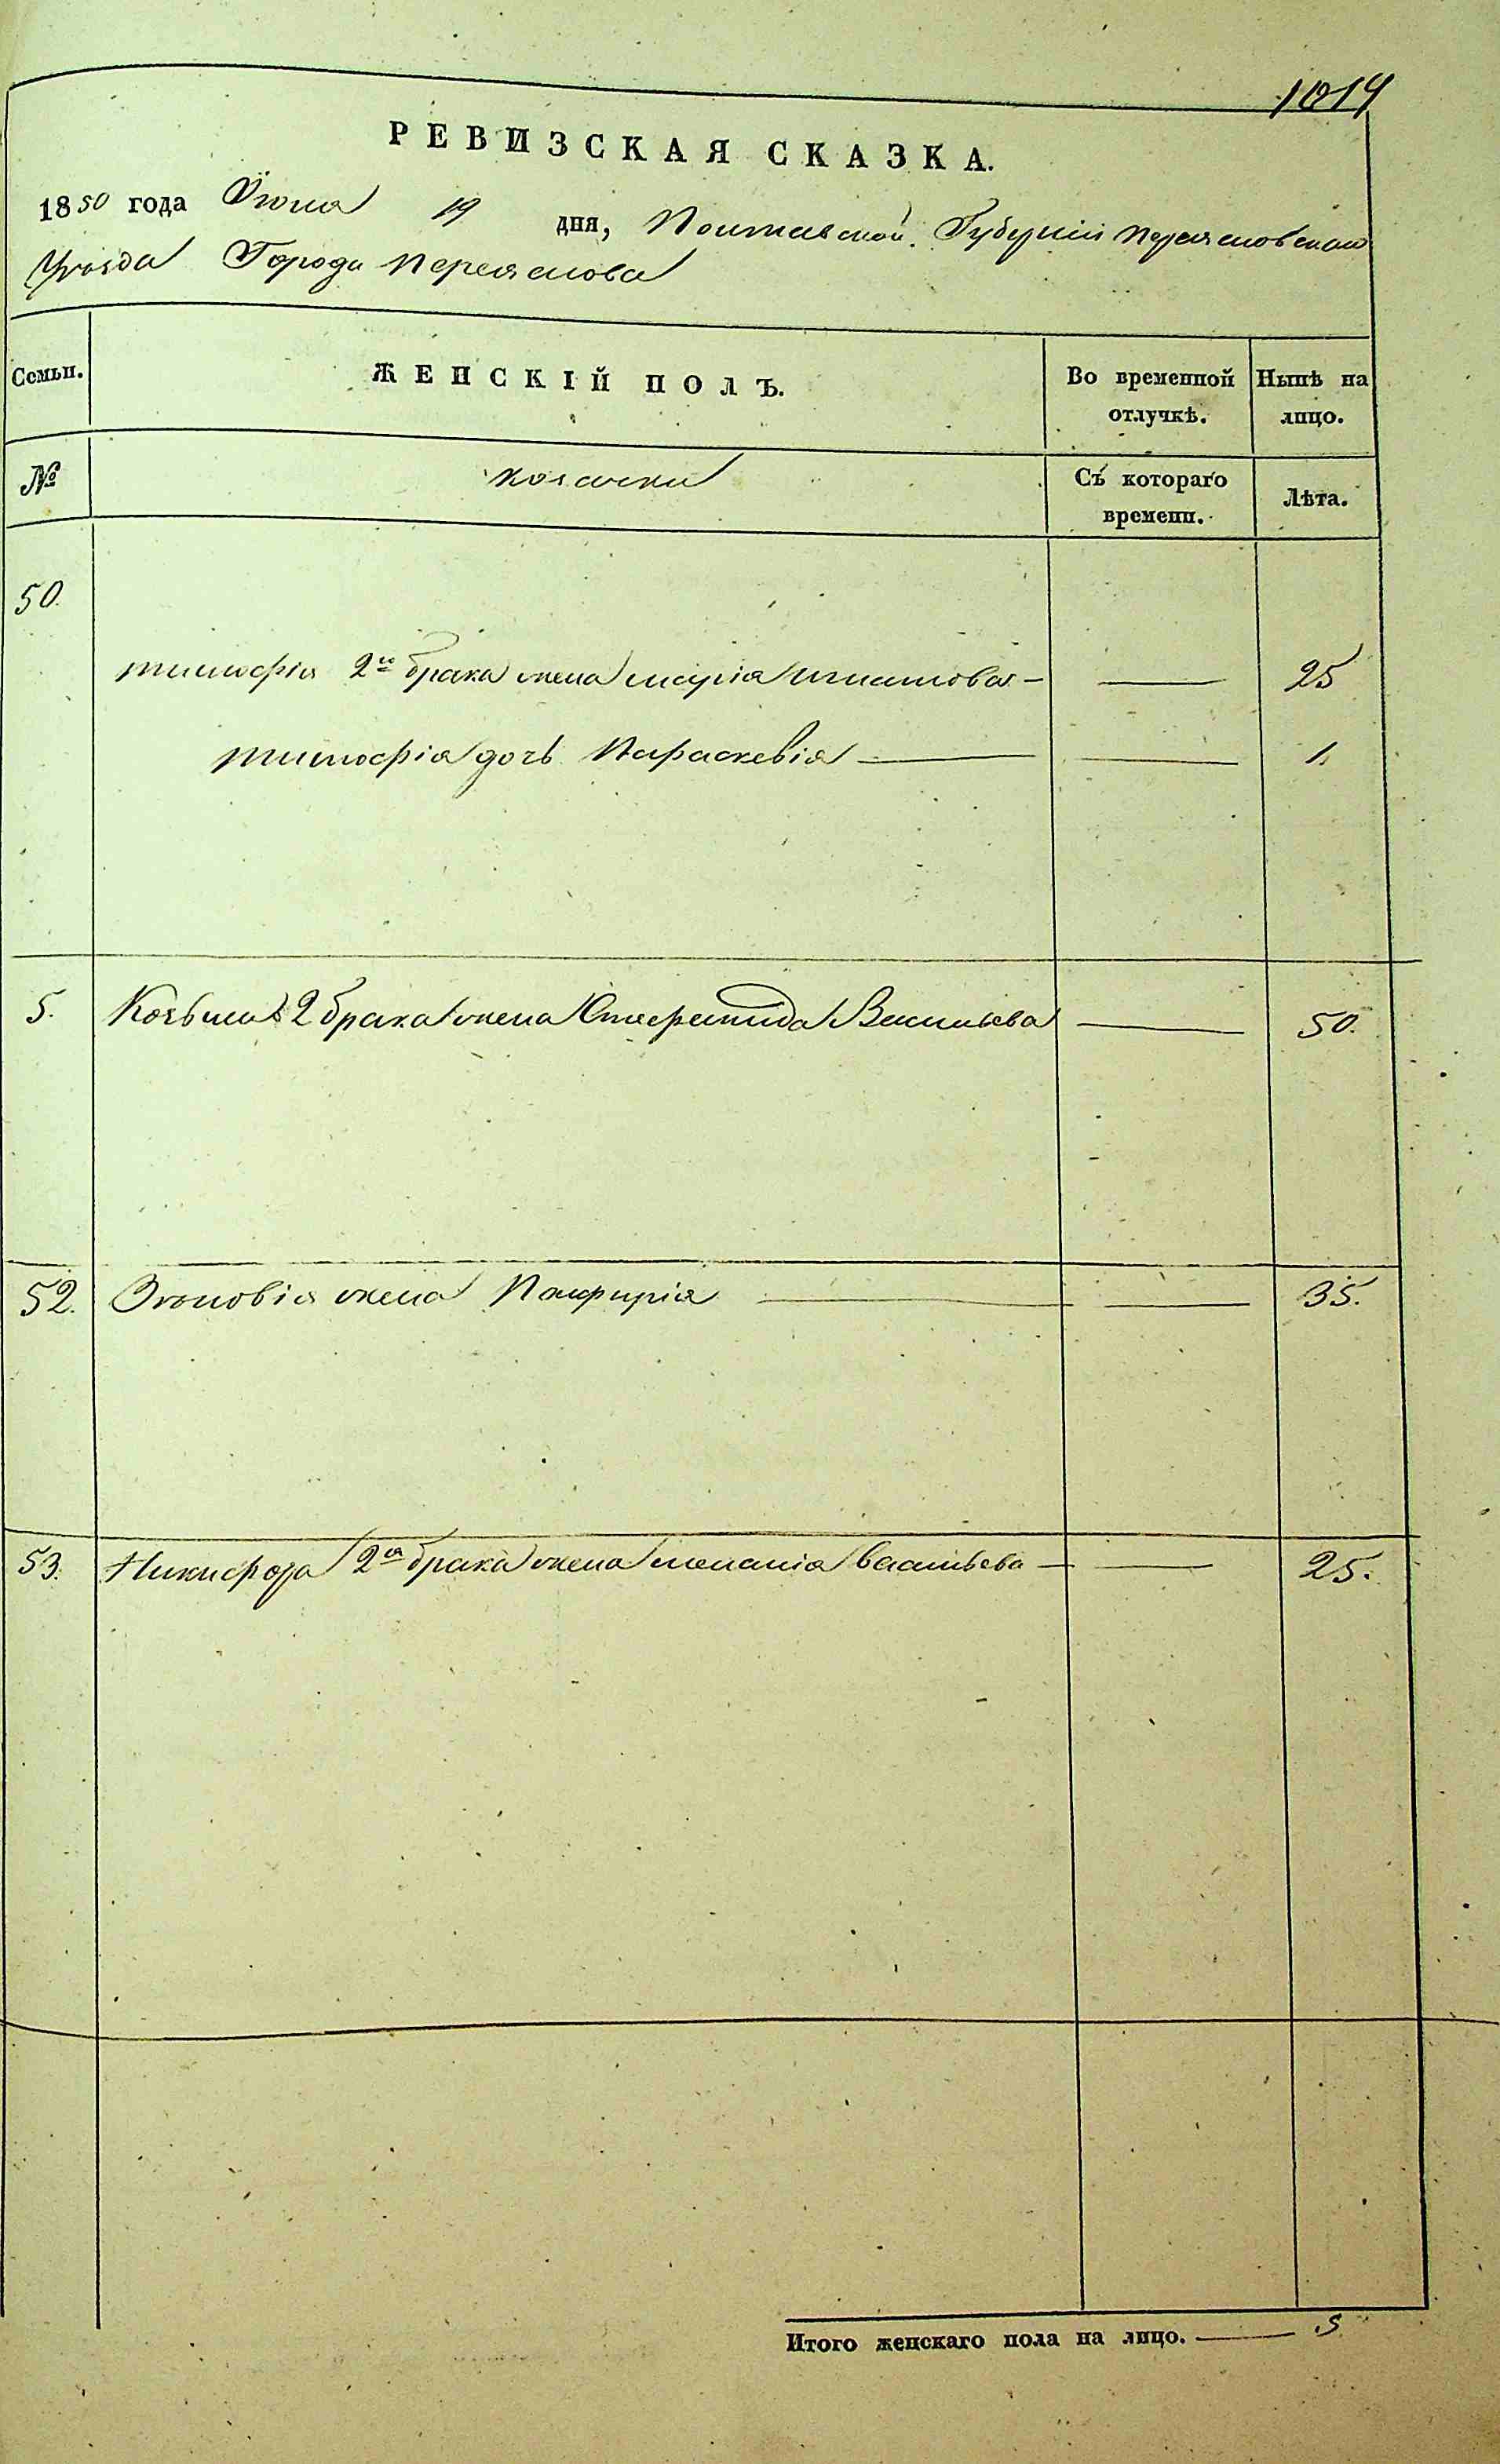 1014
РЕВИЗСКАЯ СКАЗКА.
1850 года Июня 19 дня, Полтавской Губерніи Переясловскаго
Уѣзда Города Переяслова
Семьи. ЖЕНСКІЙ ПОЛЪ. Во временной отлучкѣ. Нынѣ на лицо.
№ козачки Съ котораго времени. Лѣта.
50.
тимофія 2го брака жена марія игнатова — — 25
тимофія дочь Параскевія — — 1.
5. Козьмы 2 брака жена Васильева — 50.
52. Зѣновія жена — — 35.
53. Никифора 2го брака жена меланія васильева — — 25.
Итого женскаго пола на лицо. — 5